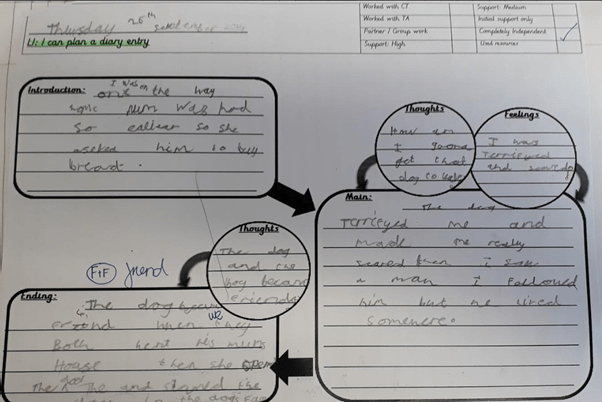 Thursday 26th September
LI: I can plan a diary entry
Worked with CT
Worked with TA
Partner / Group work
Support: High
Support: Medium
Initial support only
Completely Independent
Used resources
Introduction:
I was on the way
home Mum was had
so so she
asked him to buy
bread.
Thoughts
How am
I
get that
dog to
Feelings
I was
terrieyed
and
Main:
The dog
terrieyed me and
made me really
scared then I saw
a man I followed
him but he lived
somewere.
Thoughts
The dog
and the
boy became
friends
FtF friend
Ending:
The dog became
when they we
Both went his mums
House then she open
The door and signed the
in the dog